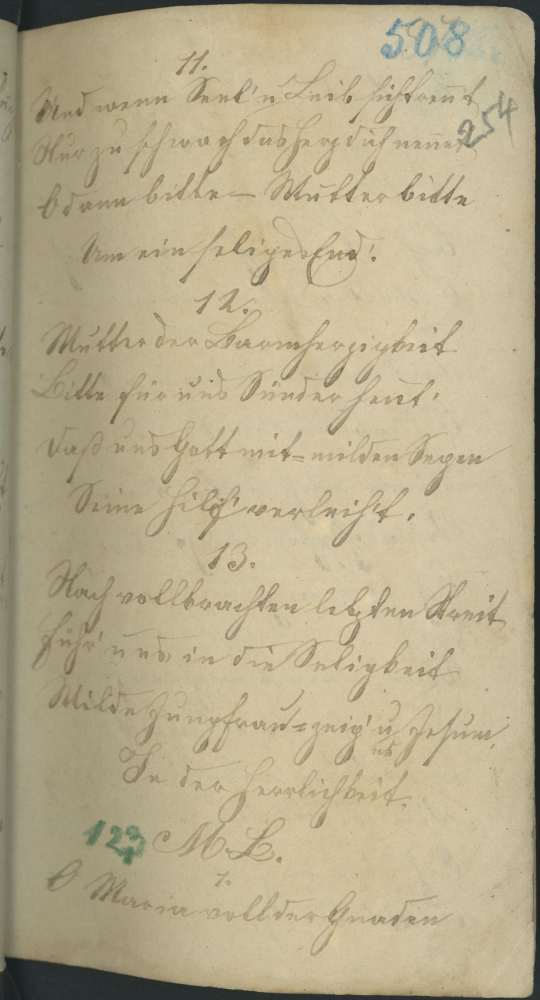 508
254
11.
Und wenn Seel' u Leib sich trent
Nur zu schwach das Herz dich nennet
O dann bitte – Mutter bitte
Um ein seliges End'.
12.
Mutter der Barmherzigkeit
Bitte für uns Sünder heut'
Daß uns Gott mit milden Segen
Seine Hilf' verleiht.
13.
Nach vollbrachten letzten Streit
Führ' uns in die Seligkeit
Milde Jungfrau = zeig' uns Jesum,
In der Herrlichkeit.
123 M. L.
1.
O Maria voll der Gnaden